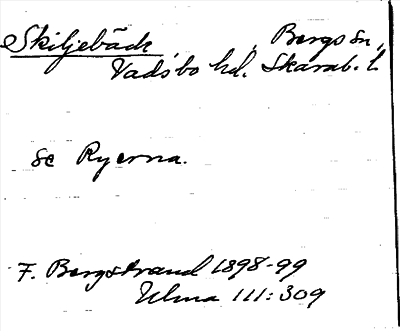 Skiljebäck, Bergs sn,
Vadsbo hd. Skarab. l.
se Ryerna.
F. Bergstrand 1898-99
Ulma 111:309